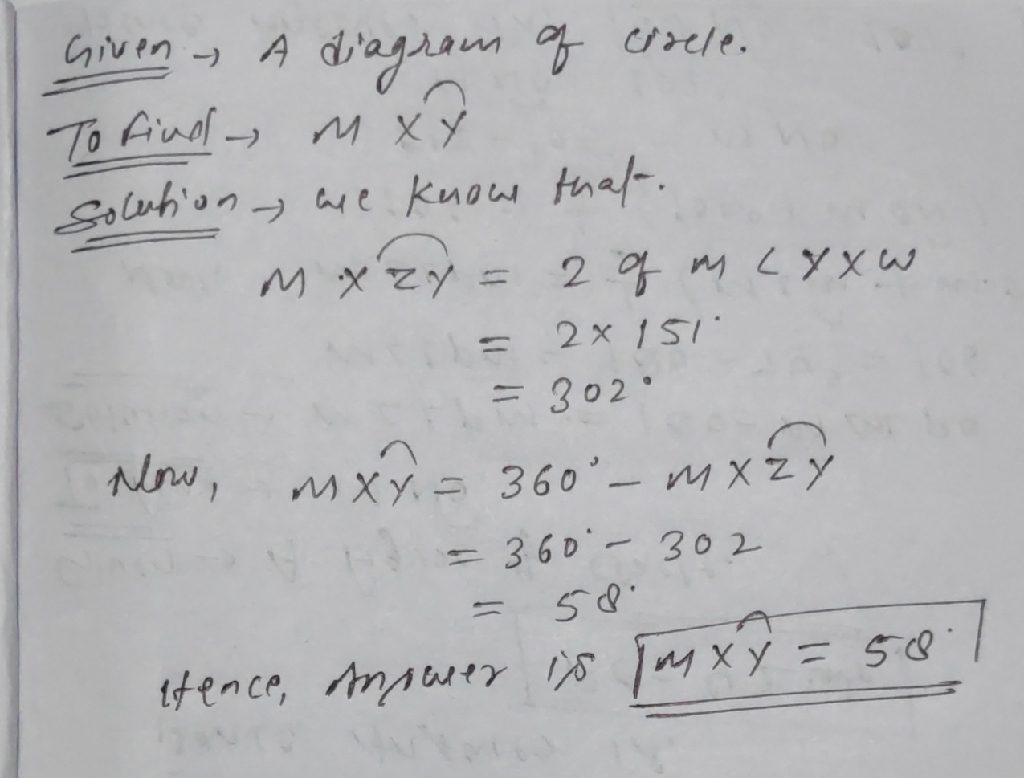 Given → A diagram of circle.
To find → m X͡Y
Solution → we know that.
m X͡ZY = 2 of m < YXW
= 2 × 151°
= 302°
Now, m X͡Y = 360° - m X͡ZY
= 360° - 302
= 58°
Hence, Answer is m X͡Y = 58°